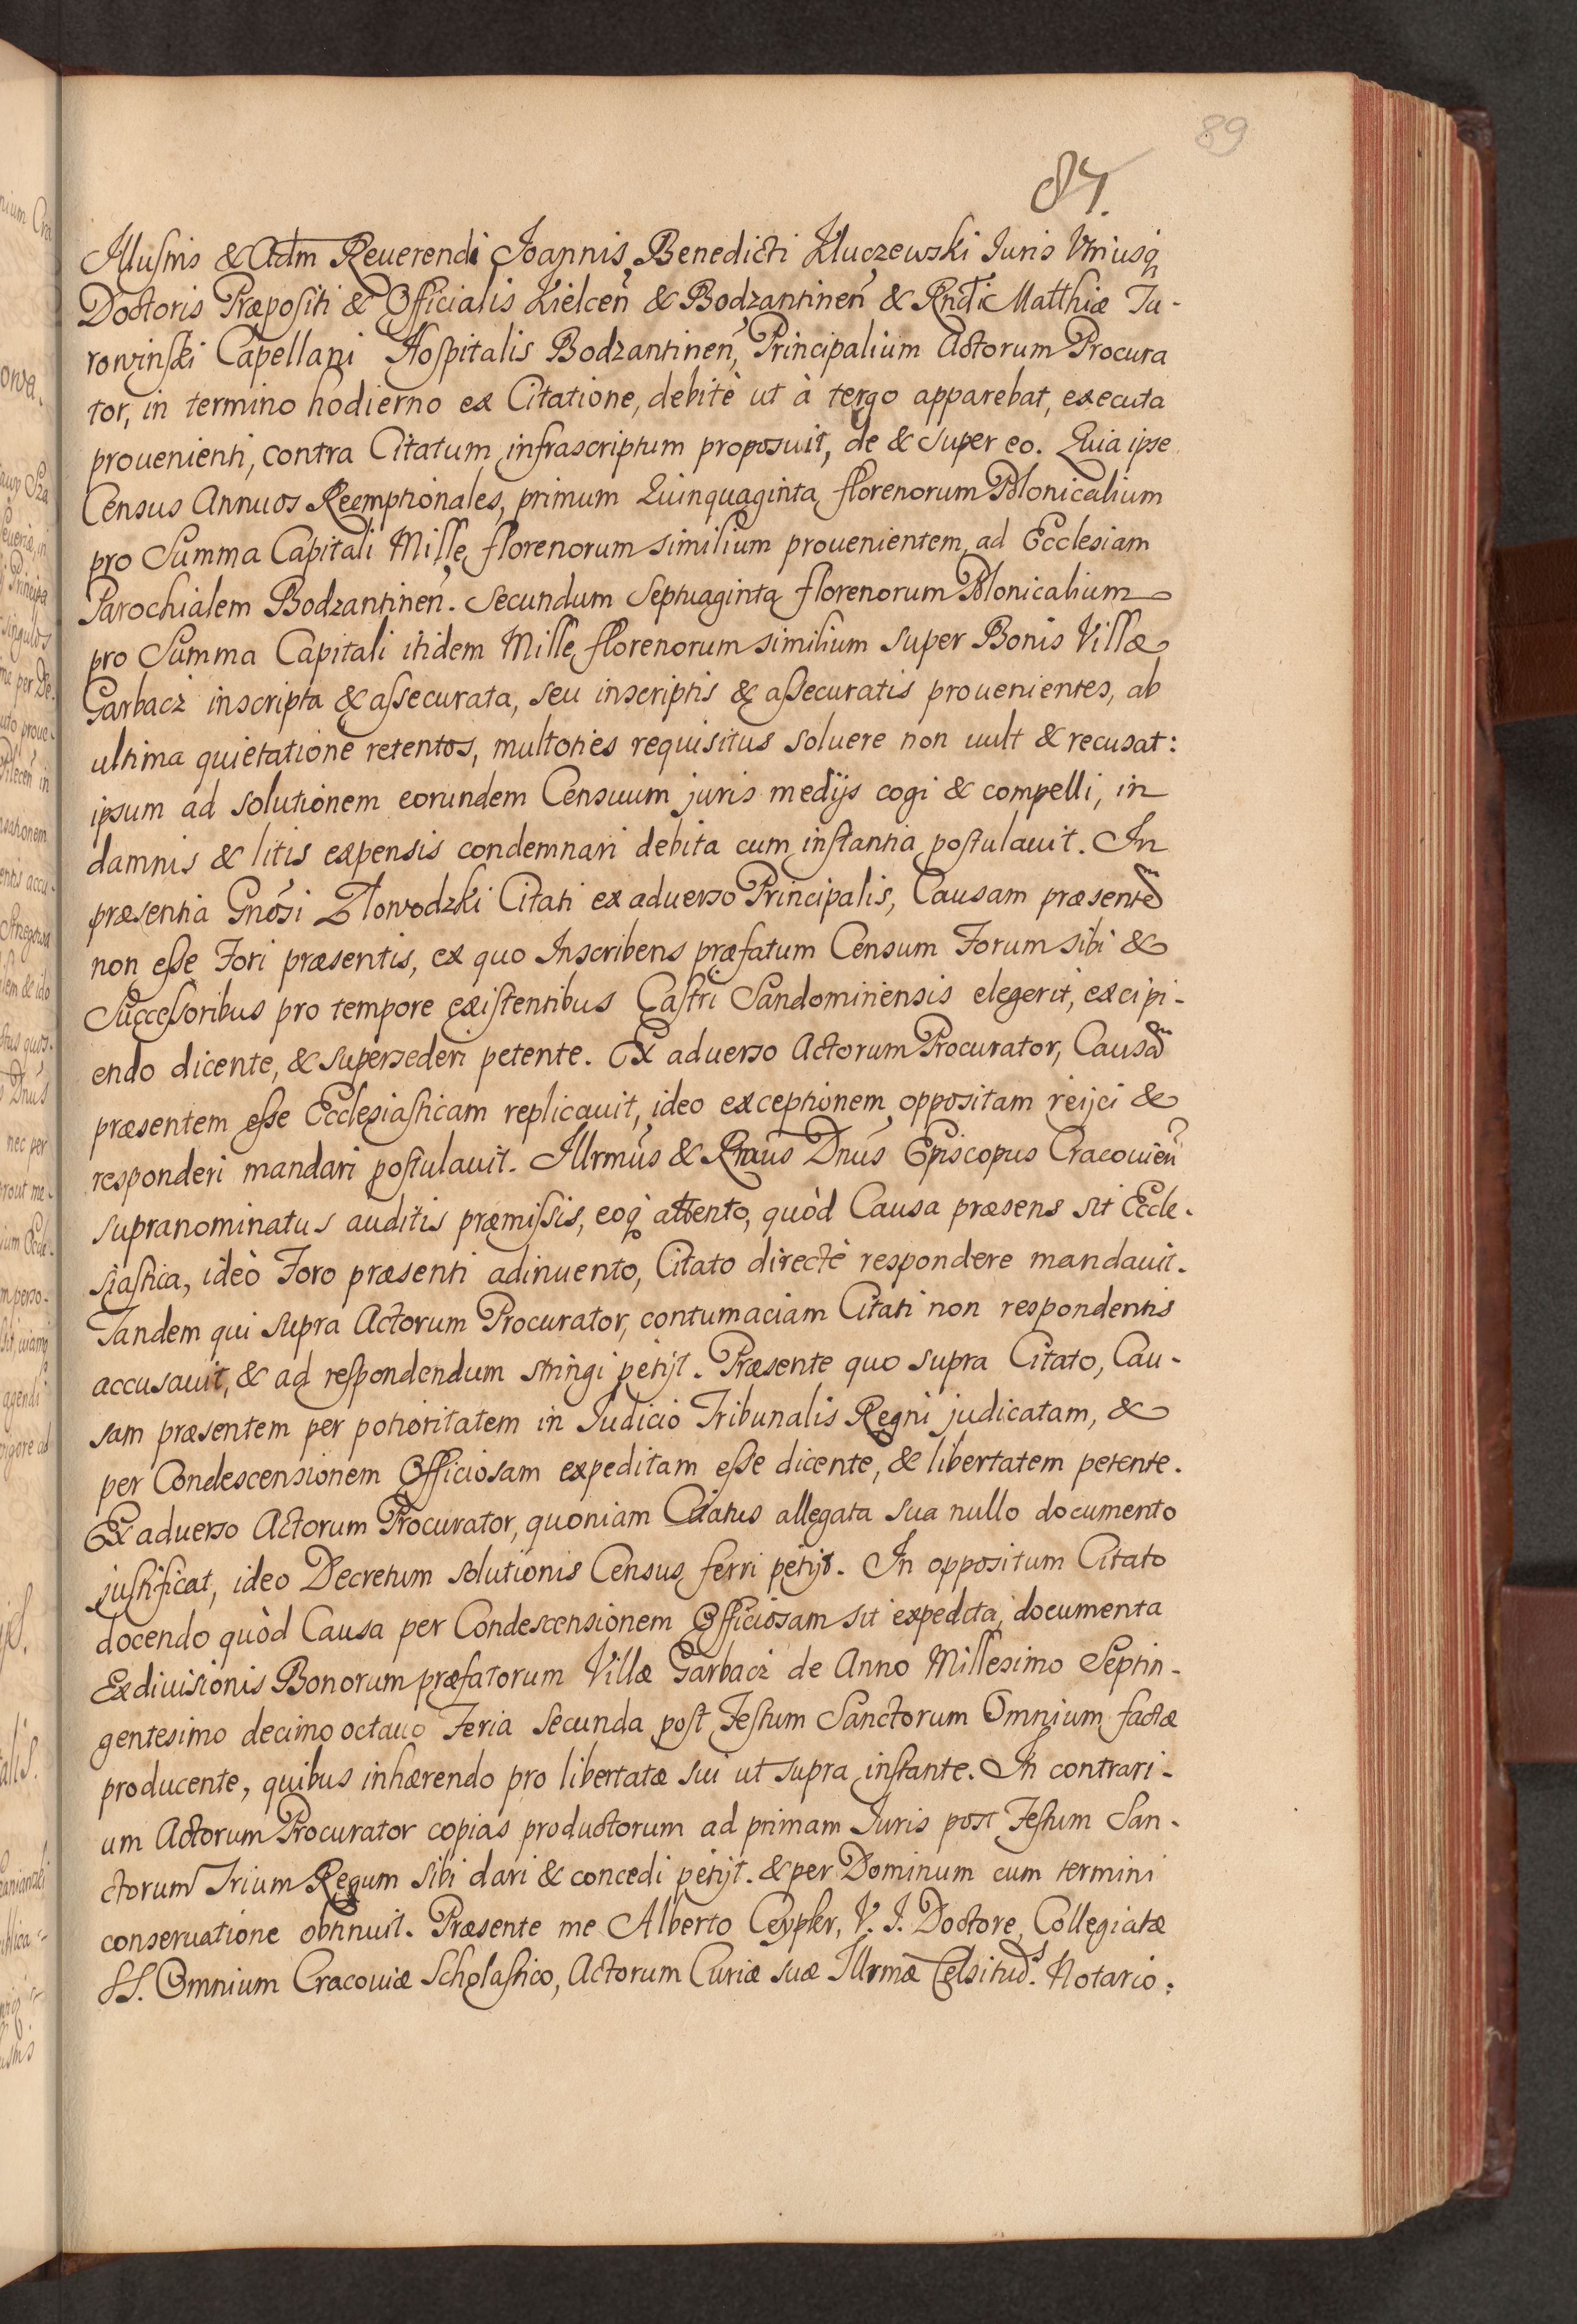 89
87.
Illustris & Adm Reuerendi Joannis Benedicti Kluczewski Juris Vtriusq
Doctoris Præpositi & Officialis Kielcen & Bodzantinen & Rndi Matthiæ Tu-
rowinski Capellani Hospitalis Bodzantinen, Principalium Actorum Procura
tor, in termino hodierno ex Citatione, debitè ut à tergo apparebat, executa
prouenienti, contra Citatum infrascriptum proposuit, de & super eo. Quia ipse
Census Annuos Reemptionales, primum Quinquaginta florenorum Polonicalium
pro Summa Capitali Mille florenorum similium prouenientem, ad Ecclesiam
Parochialem Bodzantinen. Secundum Septuaginta florenorum Polonicalium
pro Summa Capitali itidem Mille florenorum similium super Bonis Villæ
Garbacz inscripta & assecurata, seu inscriptis & assecuratis prouenientes, ab
ultima quietatione retentos, multoties requisitus soluere non uult & recusat:
ipsum ad solutionem eorundem Censuum juris medijs cogi & compelli, in
damnis & litis expensis condemnari debita cum instantia postulauit. In
præsentia Gnosi Złowodzki Citati ex aduerso Principalis, Causam præsentem
non esse Fori præsentis, ex quo Inscribens præfatum Censum Forum sibi &
Successoribus pro tempore existentibus Castri Sandomiriensis elegerit, excipi-
endo dicente, & supersederi petente. Ex aduerso Actorum Procurator, Causam
præsentem esse Ecclesiasticam replicauit, ideo exceptionem oppositam reijci &
responderi mandari postulauit. Illrmus & Rmus Dnus Episcopus Cracouien
supranominatus auditis præmissis, eoq attento, quòd Causa præsens sit Eccle-
siastica, ideò Foro præsenti adinuento, Citato directè respondere mandauit.
Tandem qui supra Actorum Procurator, contumaciam Citati non respondentis
accusauit, & ad respondendum stringi petijt. Præsente quo supra Citato, Cau-
sam præsentem per potioritatem in Judicio Tribunalis Regni judicatam, &
per Condescensionem Officiosam expeditam esse dicente, & libertatem petente.
Ex aduerso Actorum Procurator, quoniam Citatus allegata sua nullo documento
justificat, ideo Decretum solutionis Census ferri petijt. In oppositum Citato
docendo quòd Causa per Condescensionem Officiosam sit expedita, documenta
Exdiuisionis Bonorum præfatorum Villæ Garbacz de Anno Millesimo Septin-
gentesimo decimo octauo Feria secunda post Festum Sanctorum Omnium factæ
producente, quibus inhærendo pro libertatæ sui ut supra instante. In contrari-
um Actorum Procurator copias productorum ad primam Juris post Festum San-
ctorum Trium Regum sibi dari & concedi petijt. & per Dominum cum termini
conseruatione obtinuit. Præsente me Alberto Ceypler, V. J. Doctore, Collegiatæ
SS. Omnium Cracouiæ Scholastico, Actorum Curiæ suæ Illrmæ Celsitud. Notario.